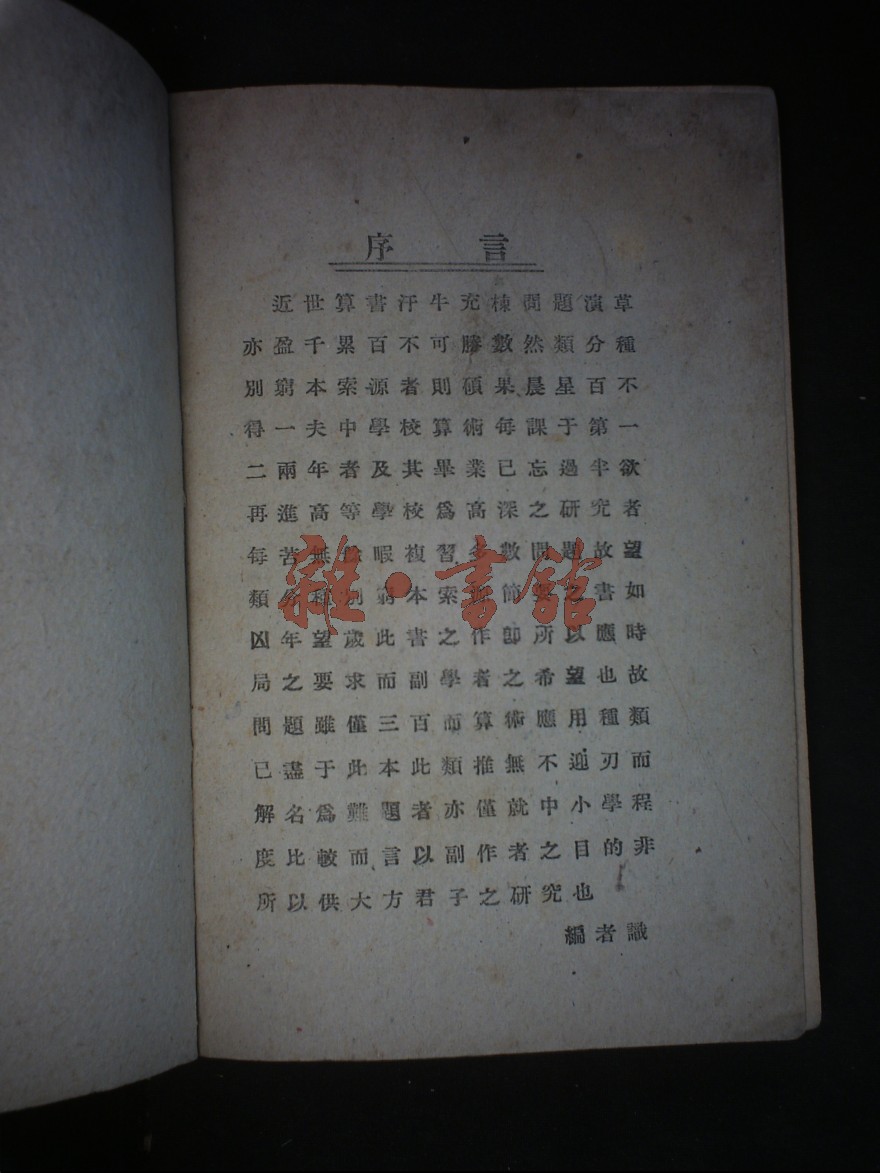 序言
近世算書汗牛充棟問題演草
亦盈千累百不可勝數然類分種
別窮本索源者則碩果晨星百不
得一夫中學校算術每課于第一
二兩年者及其畢業已忘過半欲
再進高等學校爲高深之研究者
每苦無餘暇複習多數問題故望
類分種別窮本索源節繁之書如
凶年望歲此書之作卽所以應時
局之要求而副學者之希望也故
問題雖僅三百而算術應用種類
已盡于此本此類推無不迎刃而
解名爲難題者亦僅就中小學程
度比較而言以副作者之目的非
所以供大方君子之研究也
編者識
雜·書館